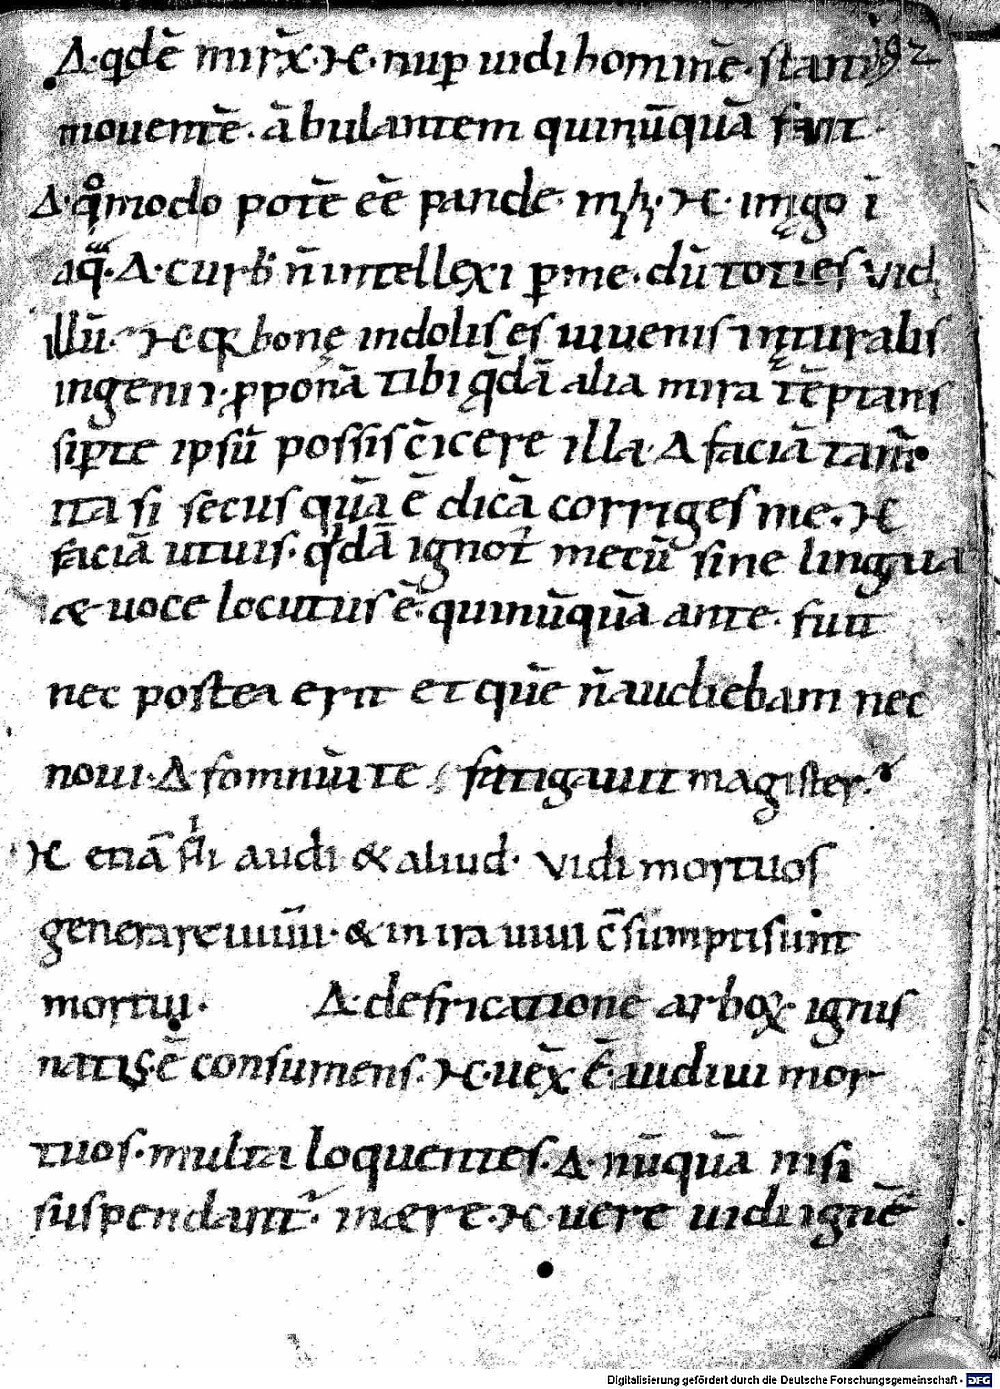 Δ·qđē mirx̄·ꓘC·nup̄ uidi hominē·stanti 192
mouentē·ābulantem quinūquā fuit·
Δ·qͦmodo potē eē pande·mꝩh·ꓘC·imago ī
aqͣ·Δ·cur ñ intellexi p̱me·dū toties vidi
illū·ꓘC bonę indolis es iuuenis naturalis
ingenii·p̱ponā tibi q̄dā alia mira tēptans
sip̱te ipsū possis c̄icere illa·Δ faciā tam̄
ita si secus quā ē dicā corriges me·ꓘC
faciā utuis·q̄dā ignot̄ mecū sine lingua
& uoce locutus ē·quinūquā ante·fuit
nec postea erit et quē ñ audiebam nec
noui·Δ somniū te fatigauit magister·
ꓘC etiā fłi audi & aliud·vidi mortuos
generare uiuū·& in ira uiui c̄sumpti sunt
mortui· Δ·de fricatione arboꝝ·ignis
natꝰ·ē consumens·ꓘC·uēx ē·audiui mor-
tuos·multa loquentes·Δ·nūquā nisi
suspendant᷑·in aere·ꓘC·uere uidi ignē
Digitalisierung gefördert durch die Deutsche Forschungsgemeinschaft - DFG